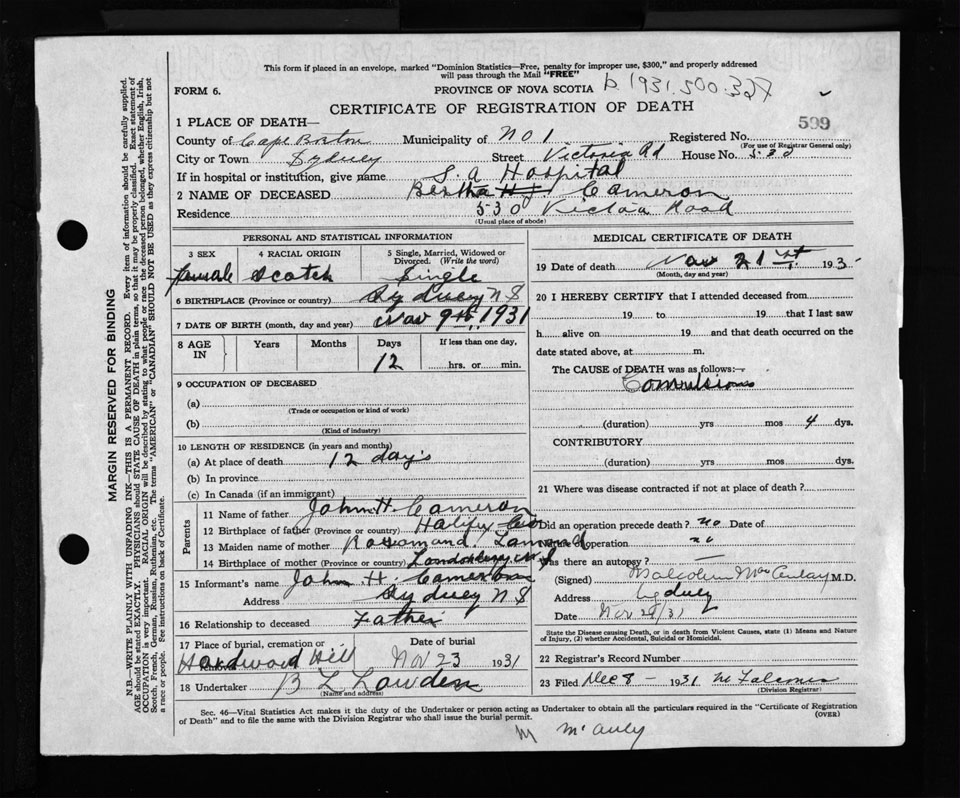 This form if placed in an envelope, marked "Dominion Statistics—Free, penalty for improper use, $300," and properly addressed
will pass through the Mail "FREE"
FORM 6.
PROVINCE OF NOVA SCOTIA
b. 1931.500.327
CERTIFICATE OF REGISTRATION OF DEATH
599
1 PLACE OF DEATH—
County of Cape Breton Municipality of No 1 Registered No.
(For use of Registrar General only)
City or Town Sydney Street Victoria Rd House No. 530
If in hospital or institution, give name S. A Hospital
2 NAME OF DECEASED Bertha H. J. Cameron
Residence 530 Victoria Road
(Usual place of abode)
PERSONAL AND STATISTICAL INFORMATION
3 SEX 4 RACIAL ORIGIN 5 Single, Married, Widowed or
Divorced. (Write the word)
female Scotch Single
6 BIRTHPLACE (Province or country) Sydney N S
7 DATE OF BIRTH (month, day and year) Nov 9th, 1931
8 AGE IN Years Months Days If less than one day,
12 hrs. or min.
9 OCCUPATION OF DECEASED
(a)
(Trade or occupation or kind of work)
(b)
(Kind of industry)
10 LENGTH OF RESIDENCE (in years and months)
(a) At place of death 12 days
(b) In province
(c) In Canada (if an immigrant)
Parents
11 Name of father John H. Cameron
12 Birthplace of father (Province or country) Halifax Co
13 Maiden name of mother Rossomand
14 Birthplace of mother (Province or country) Londonderry N S
15 Informant's name John H. Cameron
Address Sydney N S
16 Relationship to deceased Father
17 Place of burial, cremation or removal Date of burial
Hardwood Hill Nov 23 1931
18 Undertaker B L Lowden
(Name and address)
MEDICAL CERTIFICATE OF DEATH
19 Date of death Nov 21st, 193
(Month, day and year)
20 I HEREBY CERTIFY that I attended deceased from
19 to 19 that I last saw
h alive on 19 and that death occurred on the
date stated above, at m.
The CAUSE of DEATH was as follows:—
Convulsions
(duration) yrs mos 4 dys.
CONTRIBUTORY
(duration) yrs mos dys.
21 Where was disease contracted if not at place of death?
Did an operation precede death? no Date of
operation no
Was there an autopsy? —
(Signed) Malcolm MacAulay M.D.
Address Sydney
Date Nov /31
State the Disease causing Death, or in death from Violent Causes, state (1) Means and Nature
of Injury, (2) whether Accidental, Suicidal or Homicidal.
22 Registrar's Record Number
23 Filed Dec 8 — 1931
(Division Registrar)
Sec. 46—Vital Statistics Act makes it the duty of the Undertaker or person acting as Undertaker to obtain all the particulars required in the "Certificate of Registration
of Death" and to file the same with the Division Registrar who shall issue the burial permit.
(OVER)
M McAuly
MARGIN RESERVED FOR BINDING
N.B.—WRITE PLAINLY WITH UNFADING INK—THIS IS A PERMANENT RECORD. Every item of information should be carefully supplied.
AGE should be stated EXACTLY. PHYSICIANS should STATE CAUSE OF DEATH in plain terms, so that it may be properly classified. Exact statement of
OCCUPATION is very important. RACIAL ORIGIN will be described by stating to what people or race the deceased person belonged, whether English, Irish,
Scotch, French, German, Russian, Ruthenian, etc. The terms "AMERICAN" or "CANADIAN" SHOULD NOT BE USED as they express citizenship but not
a race or people. See instructions on back of Certificate.